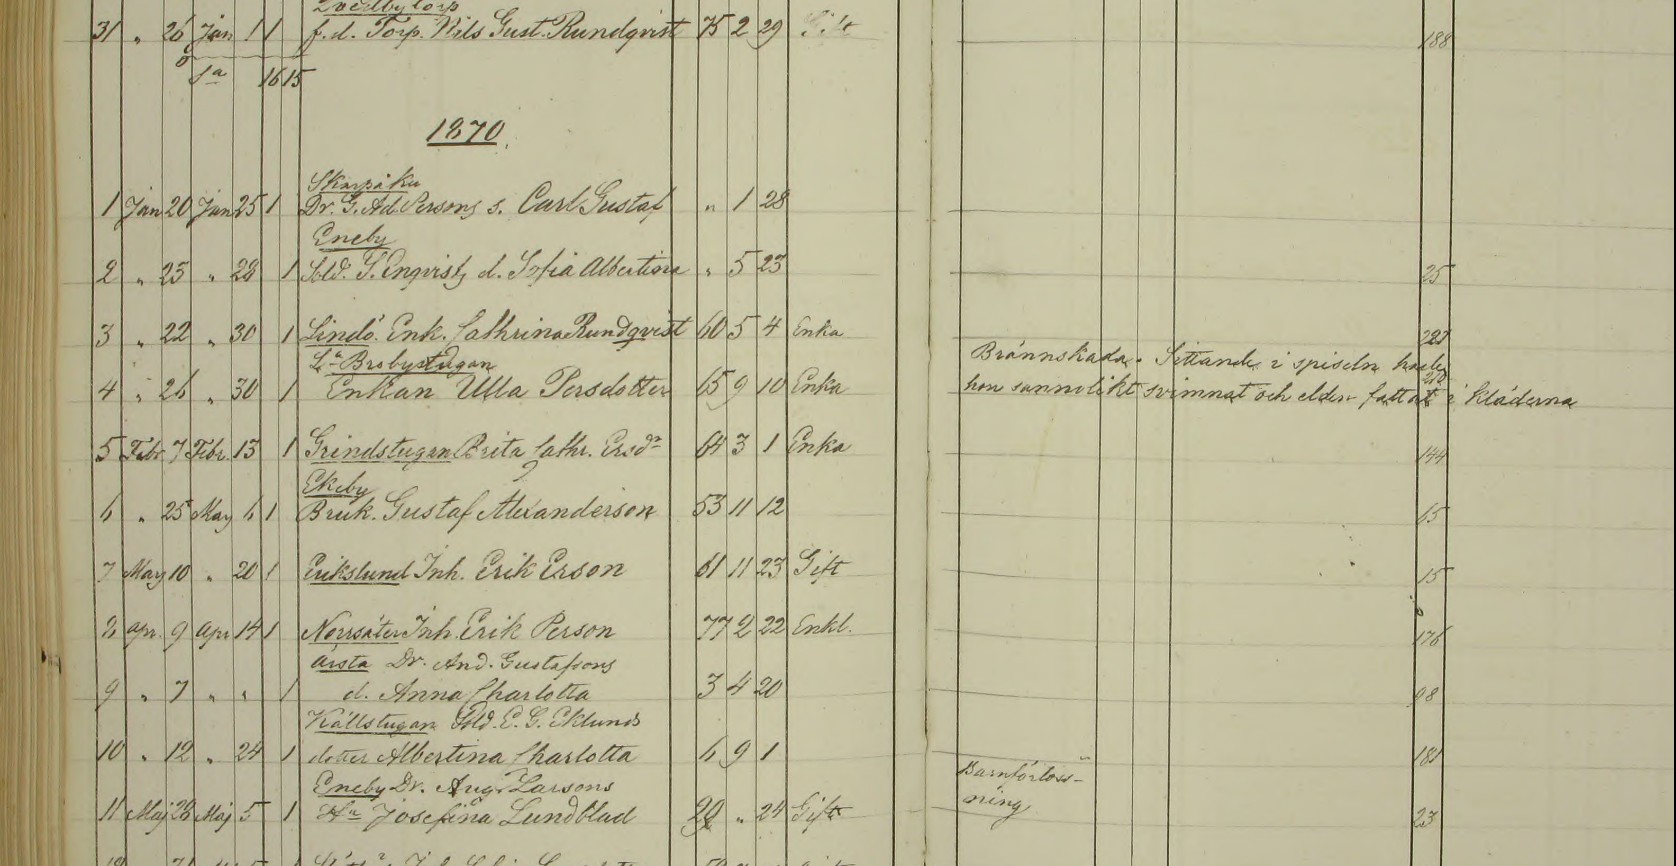 31 " 26 Jan 1 1 f. d. Torp. Nils Gust. Rundqvist 75 2 29 Gift 188
Sa 16 15
1870.
Skarpåker
1 Jan 20 Jan 25 1 Dr. G. Ad. Persons s. Carl Gustaf " 1 28
Eneby
2 " 23 " 28 1 Sold. F. Enqvists d. Sofia Albertina " 5 23 25
3 " 22 " 30 1 Lindö. Enk. Cathrina Rundqvist 60 5 4 Enka
La Brobystugan Brännskada. Sittande i spiseln hade
4 " 26 " 30 1 Enkan Ulla Persdotter 65 9 10 Enka hon sannolikt svimnat och elden fattat i kläderna
5 Febr 7 Febr. 13 1 Grindstugan Brita Cathr. Ersdr 64 3 1 Enka 144
Ekeby
6 " 25 May 6 1 Bruk. Gustaf Alexanderson 53 11 12 15
7 May 10 " 20 1 Erikslund Inh. Erik Erson 61 11 23 Gift 15
8 apr. 9 apr 14 1 Norrsäter Inh. Erik Person 77 2 22 Enkl. 176
Årsta Dr. And. Gustafsons
9 " 7 " " 1 d. Anna Charlotta 3 4 20 98
Källstugan Sold. E. G. Eklunds
10 " 12 " 24 1 dotter Albertina Charlotta 6 9 1 181
Eneby Dr. Aug. Larsons Barnförloss-
11 Maj 28 Maj 5 1 Hu Josefina Lundblad 29 " 24 Gift ning 23